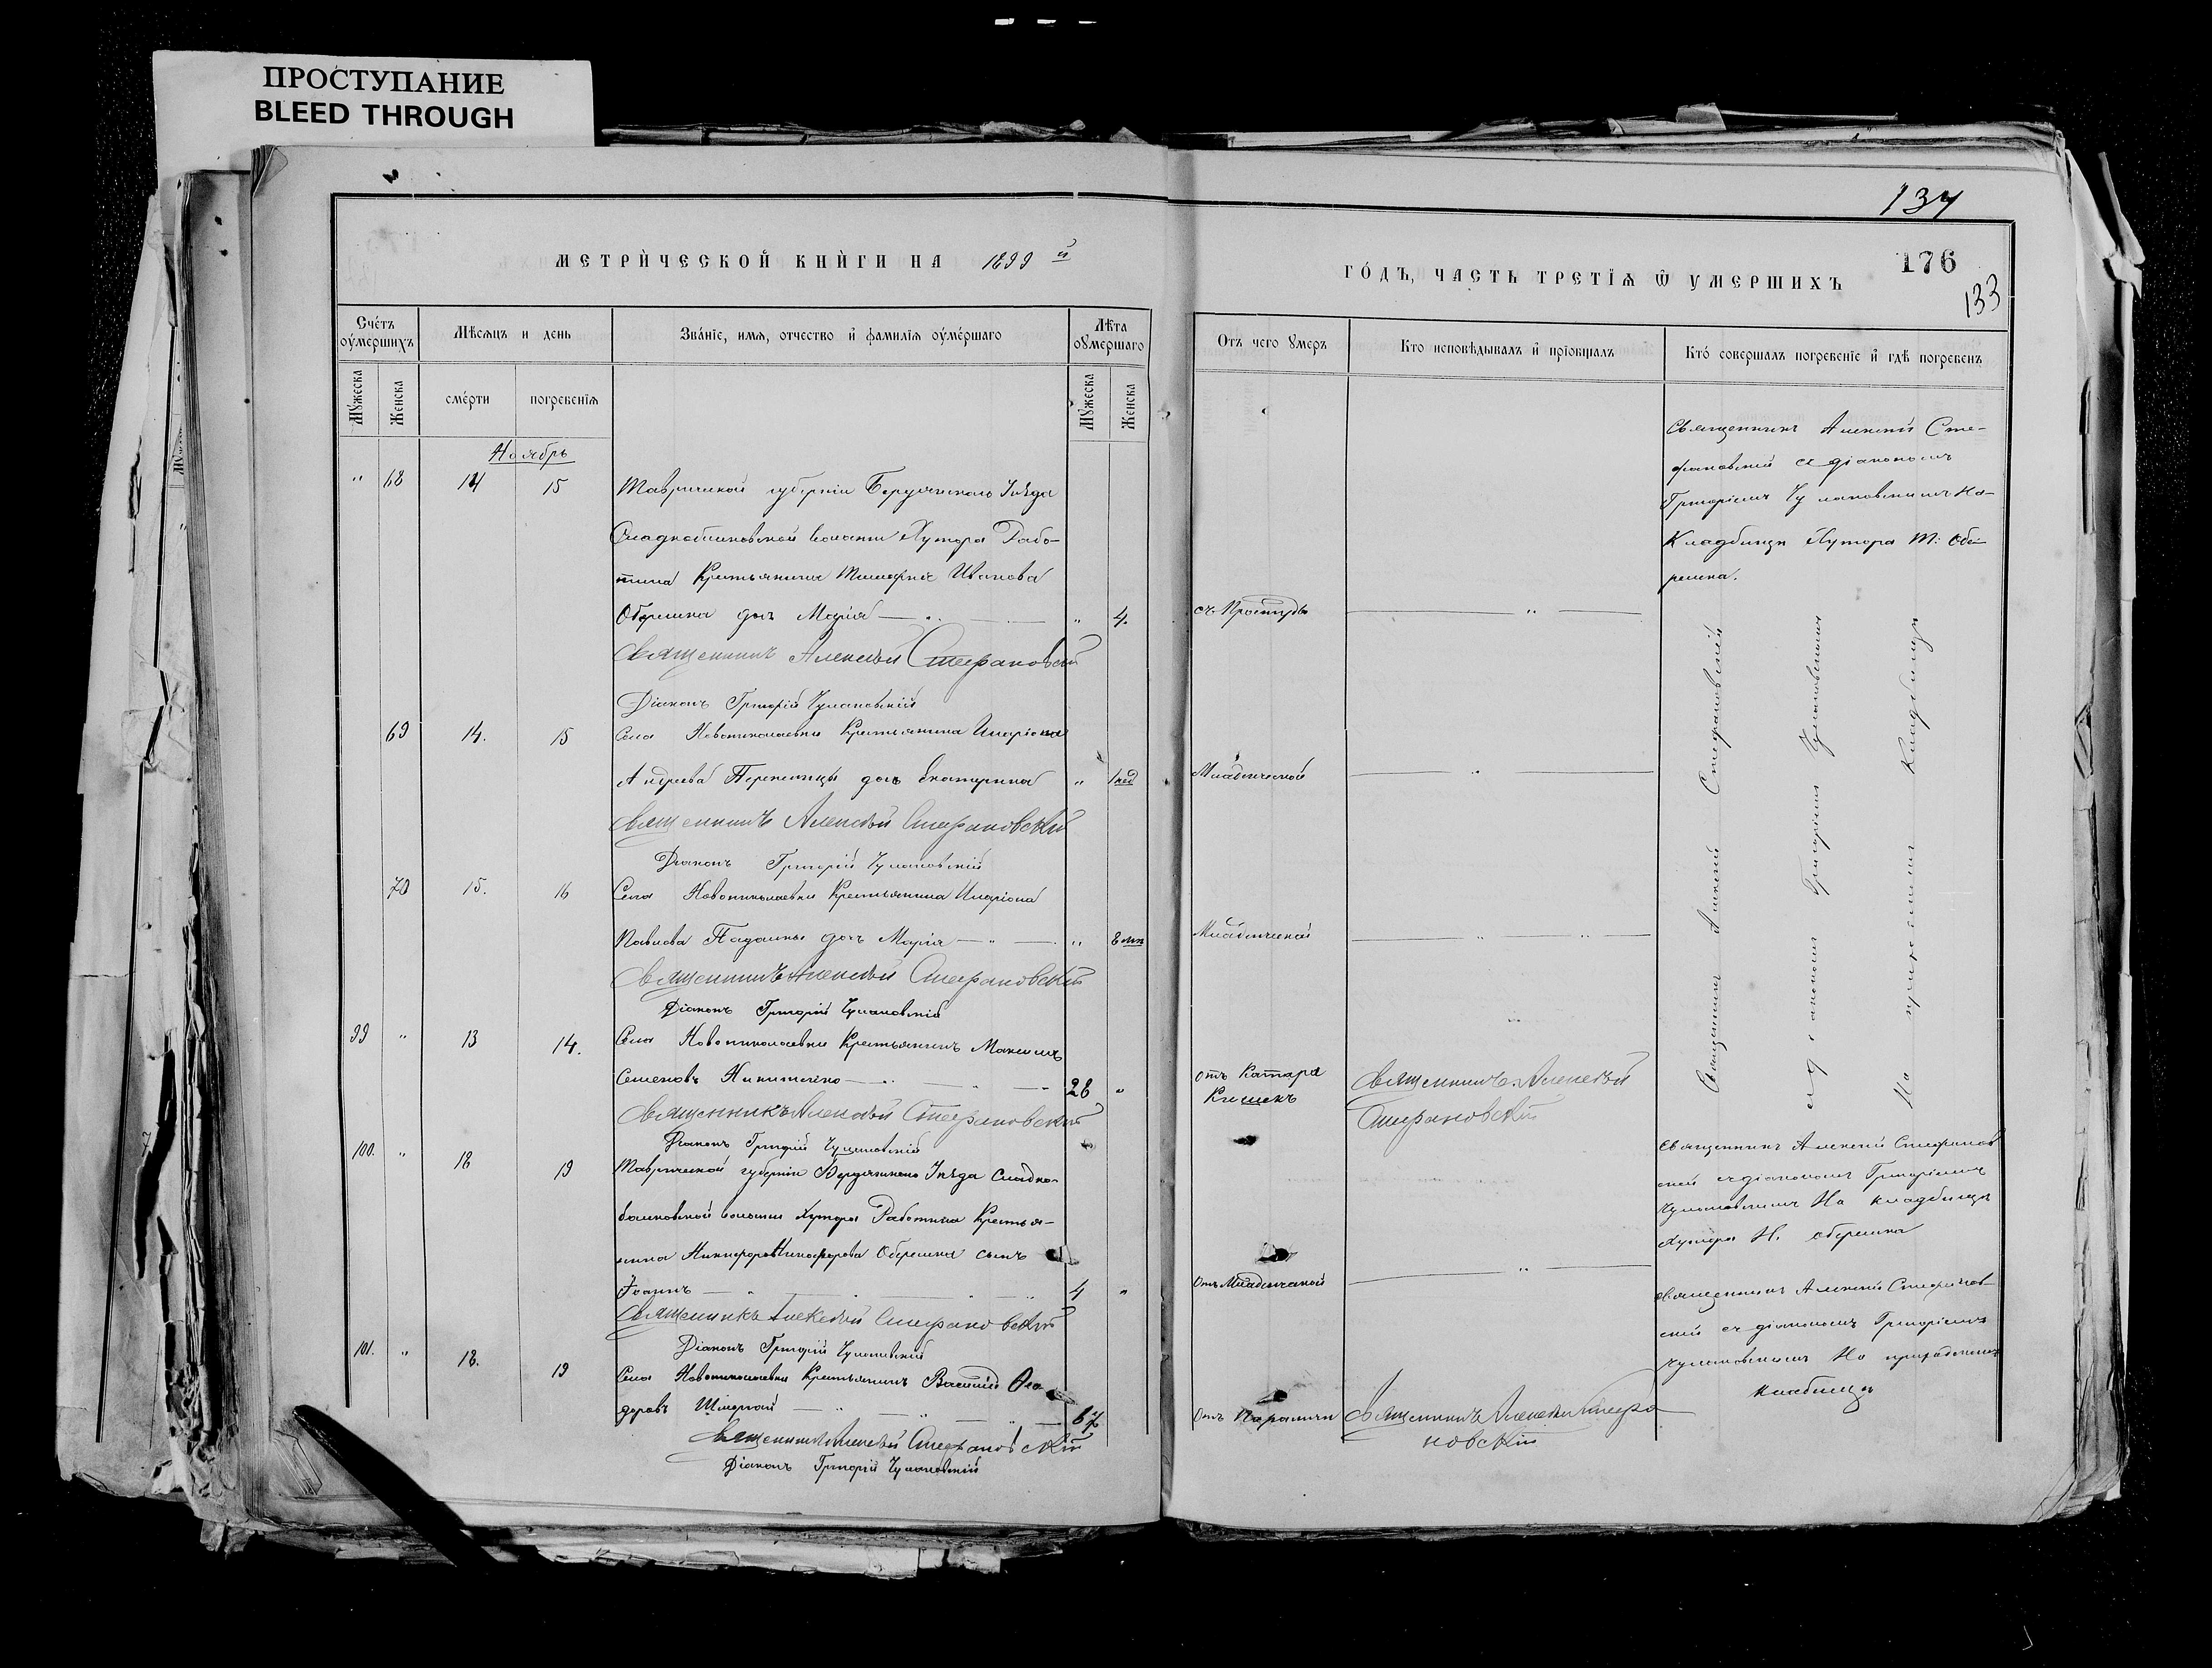 ПРОСТУПАНИЕ
BLEED THROUGH
137
176
133
МЕТРИЧЕСКОЙ КНИГИ НА 1899 й
ГОДЪ, ЧАСТЬ ТРЕТІЯ Ѿ УМЕРШИХЪ
Счетъ оумершихъ
Мѣсяцъ и день
Званіе, имя, отчество и фамилія оумершаго
Лѣта оумершаго
Отъ чего умеръ
Кто исповѣдывалъ и пріобщалъ
Кто совершалъ погребеніе и гдѣ погребенъ
Мужеска
Женска
смерти
погребенія
Мужеска
Женска
Ноябрь
" 68 14 15 Таврической губерніи Бердянскаго Уѣзда
Сладкобалковской волости Хутора Рабо-
тина Крестьянина Тимофея Иванова
Оберемка дочь Марія " 4.
съ Простуды
Священникъ Алексѣй Стефановскій
Діаконъ Григорій Чулановскій
Священникъ Алексѣй Сте-
фановскій съ діакономъ
Григоріемъ Чулановскимъ На
Кладбищѣ Хутора Т: Обе-
ремка.
69 14. 15 Села Новониколаевки Крестьянина Иларіона
Андреева дочь Екатерина " 1 нед
Младенческой
Священникъ Алексѣй Стефановскій
Діаконъ Григорій Чулановскій
70 15. 16 Села Новониколаевки Крестьянина Иларіона
Павлова дочь Марія " 8 мц
Младенческой
Священникъ Алексѣй Стефановскій
Діаконъ Григорій Чулановскій
99 " 13 14. Села Новониколаевки Крестьянинъ Максимъ
Семеновъ Никитенко 28 "
Отъ Катара
Кишекъ
Священникъ Алексѣй
Стефановскій
Священникъ Алексѣй Стефановскій
Діаконъ Григорій Чулановскій
Священникъ Алексѣй Стефановскій
съ діакономъ Григоріемъ Чулановскимъ
На приходскомъ Кладбищѣ
100. " 18 19 Таврической губерніи Бердянскаго Уѣзда Сладко-
балковской волости Хутора Работина Крестья-
нина Никифора Никифорова Оберемка сынъ
Іоаннъ 4 "
Отъ Младенческой
Священникъ Алексѣй Стефановскій
Діаконъ Григорій Чулановскій
Священникъ Алексѣй Стефанов
скій съ діакономъ Григоріемъ
Чулановскимъ На кладбищѣ
Хутора Н. Оберемка
101. " 18. 19 Села Новониколаевки Крестьянинъ Василій Ѳео
доровъ 67
Отъ
Священникъ Алексѣй Стефа
новскій
Священникъ Алексѣй Стефановскій
Діаконъ Григорій Чулановскій
Священникъ Алексѣй Стефанов
скій съ діакономъ Григоріемъ
Чулановскимъ На приходскомъ
кладбищѣ